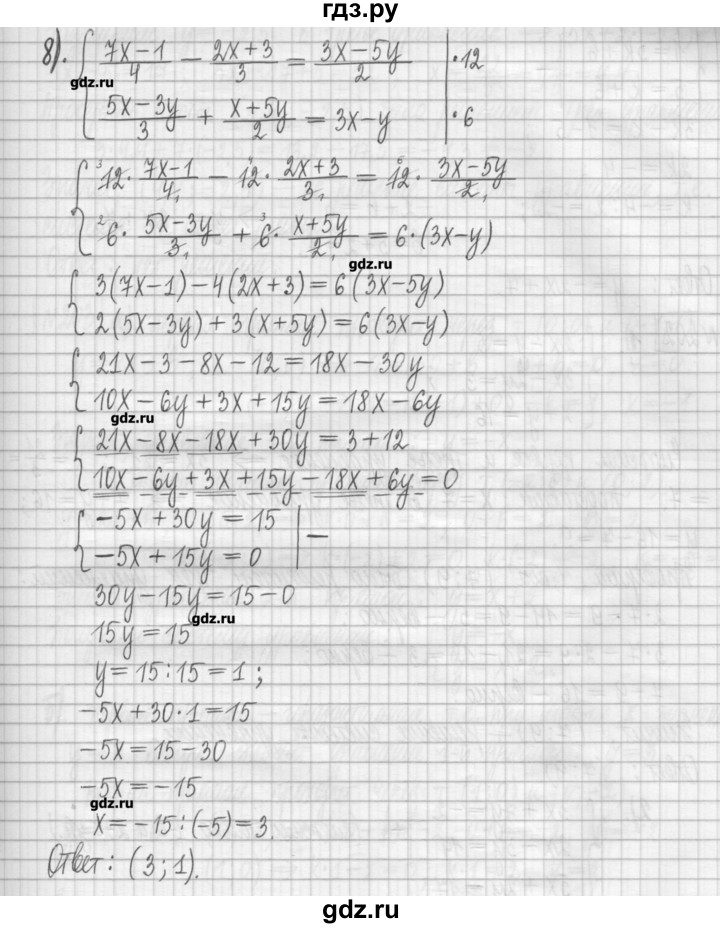 гдз.ру
8). { (7x−1)/4 − (2x+3)/3 = (3x−5y)/2 | ·12
gdz.ru
(5x−3y)/3 + (x+5y)/2 = 3x−y | ·6
{ ³12 · (7x−1)/4₁ − ⁴12 · (2x+3)/3₁ = ⁶12 · (3x−5y)/2₁
²6 · (5x−3y)/3₁ + ³6 · (x+5y)/2₁ = 6·(3x−y)
gdz.ru
{ 3(7x−1)−4(2x+3)=6(3x−5y)
2(5x−3y)+3(x+5y)=6(3x−y)
{ 21x−3−8x−12=18x−30y
10x−6y+3x+15y=18x−6y
gdz.ru
{ 21x−8x−18x+30y=3+12
10x−6y+3x+15y−18x+6y=0
{ −5x+30y=15 | −
−5x+15y=0
30y−15y=15−0
gdz.ru
15y=15
y=15:15=1;
−5x+30·1=15
−5x=15−30
−5x=−15
gdz.ru
x=−15:(−5)=3.
Ответ: (3;1).
gdz.ru